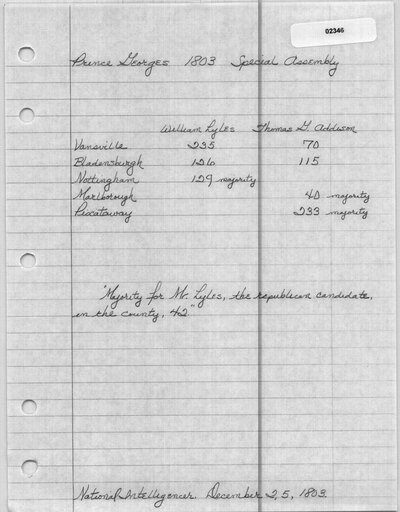 02346
Prince Georges 1803 Special Assembly
William Lyles Thomas G. Addison
Vansville 235 70
Bladensburgh 126 115
Nottingham 129 majority
Marlborough 40 majority
Piscataway 233 majority
"Majority for Mr. Lyles, the republican candidate,
in the county, 42."
National Intelligencer. December 25, 1803.